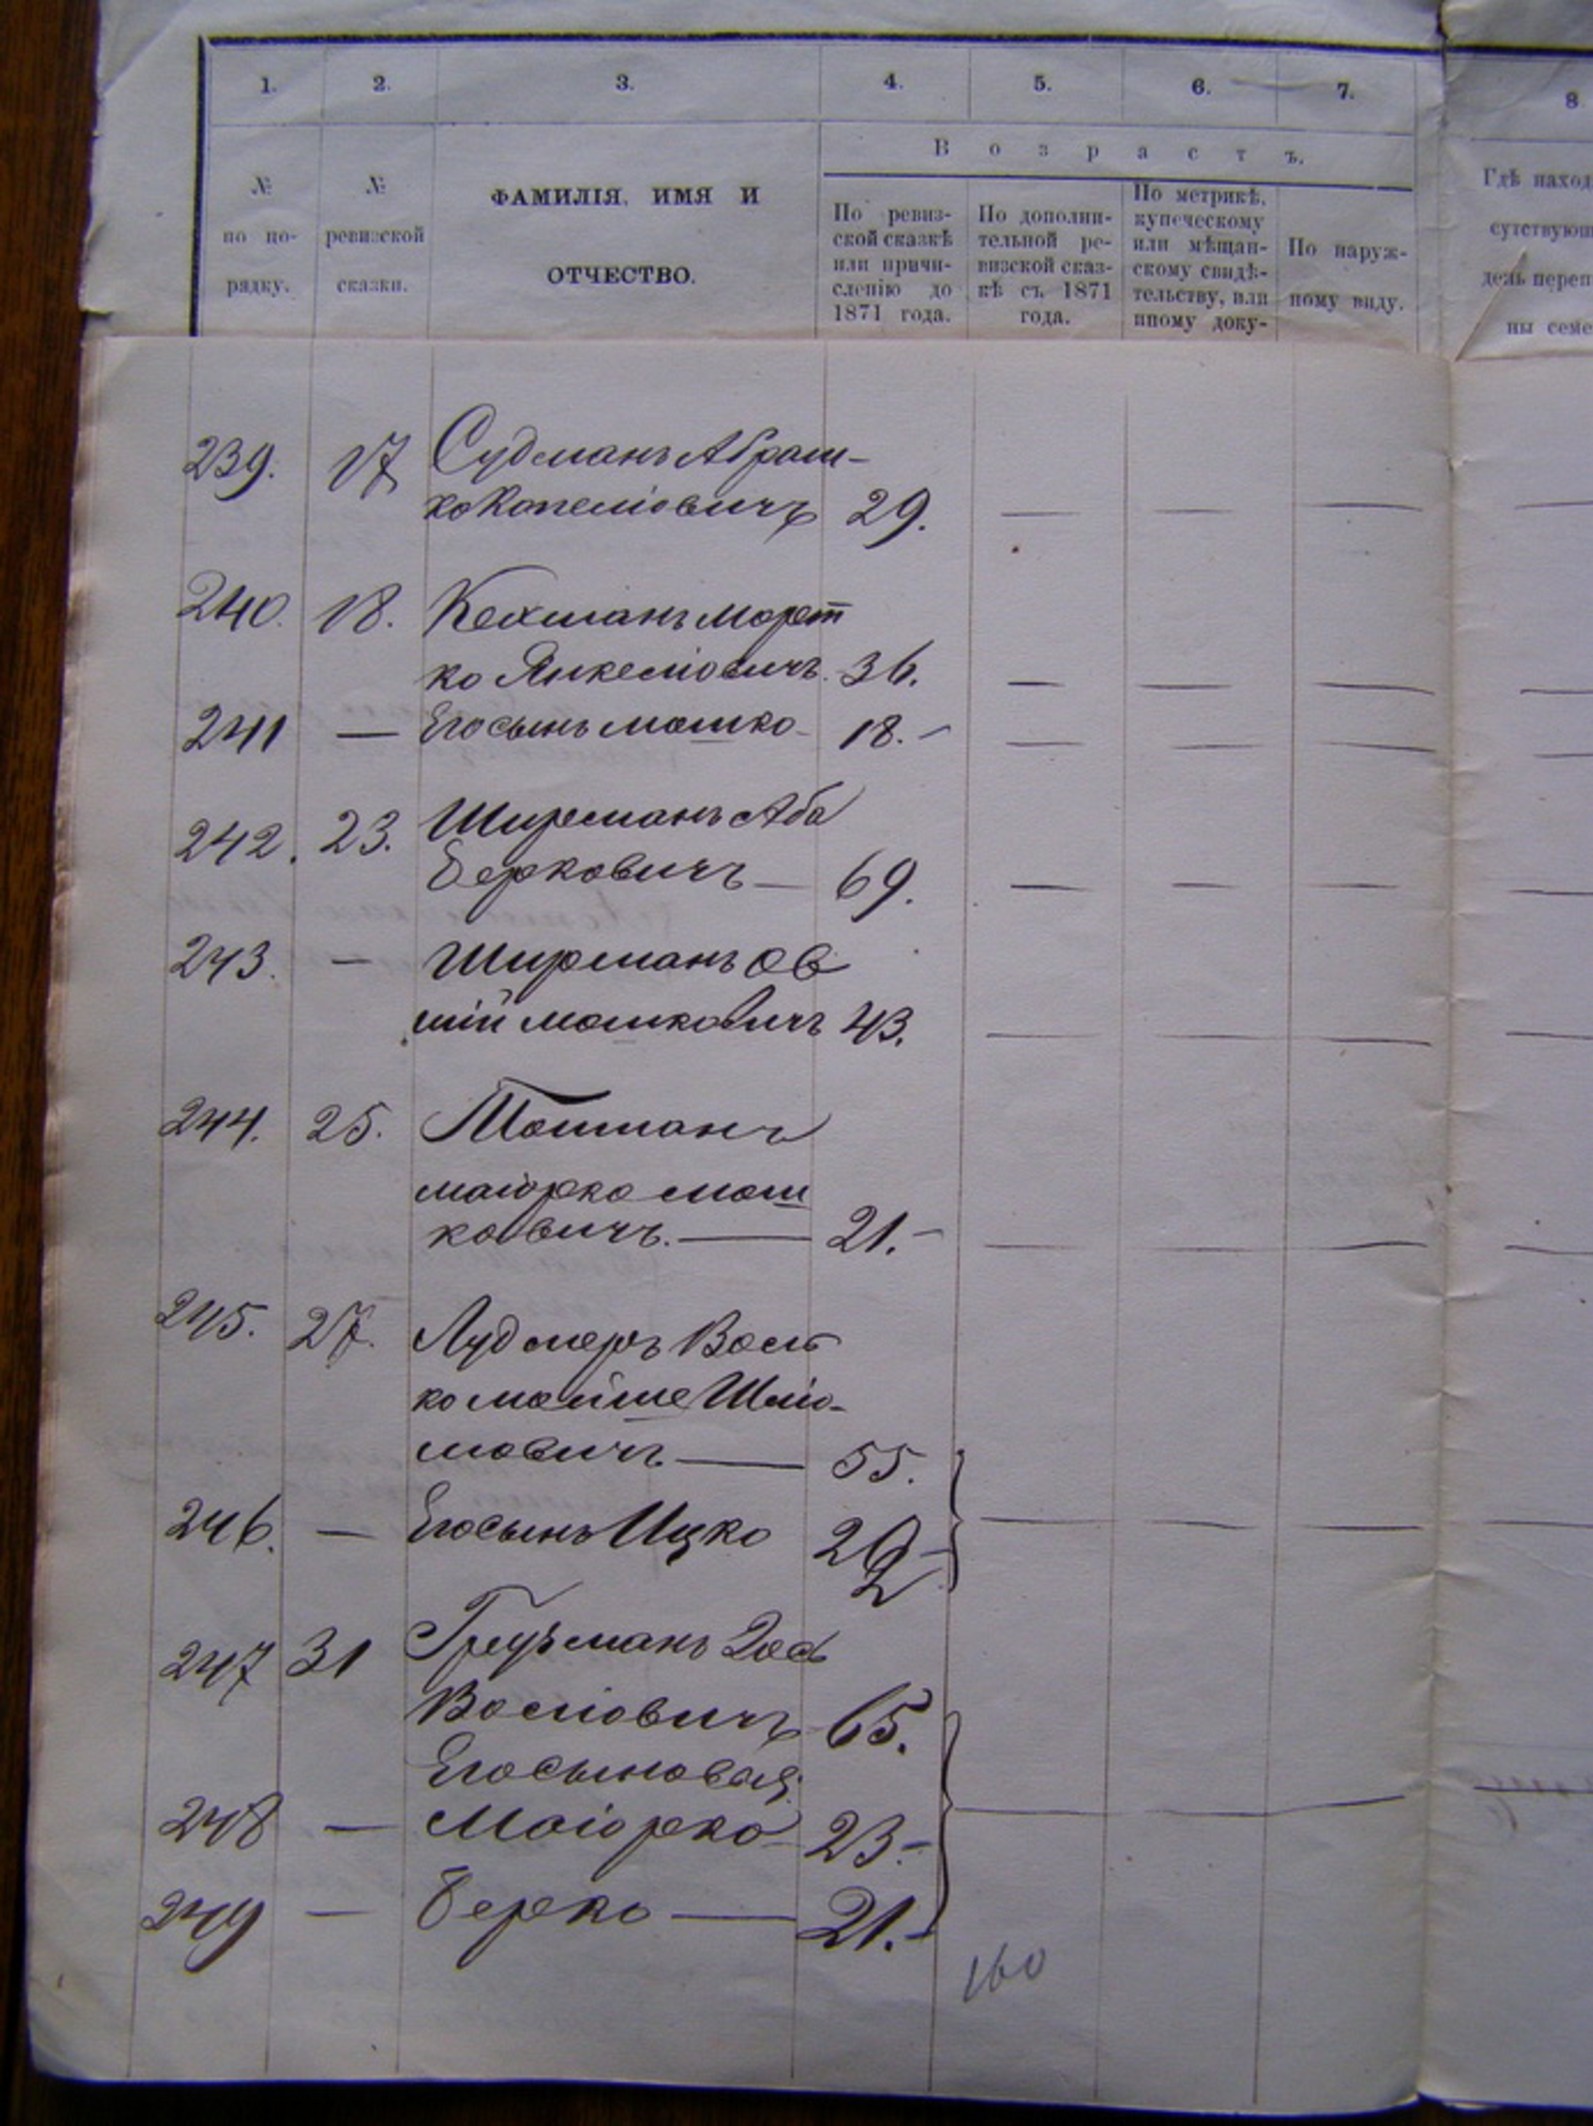 1. 2. 3. 4. 5. 6. 7. 8
№ № ФАМИЛІЯ, ИМЯ И В о з р а с т ъ.
по по- ревизской ОТЧЕСТВО.
рядку. сказки.
По ревиз-
ской сказкѣ
или причи-
сленію до
1871 года.
По дополни-
тельной ре-
визской сказ-
кѣ съ 1871
года.
По метрикѣ,
купеческому
или мѣщан-
скому свидѣ-
тельству, или
иному доку-
По наруж-
ному виду.
Гдѣ наход
сутствующ
день переп
ны семе
239. 17 Судманъ Абраш-
ко Копеліовичъ 29. — — —
240. 18. Кехманъ
ко Янкеліовичъ. 36. — — —
241 — Его сынъ Мошко 18.- — — —
242. 23. Ширманъ Аба
Берковичъ — 69. — — —
243. — Ширманъ Ов
шій Мошковичъ 43. — — —
244. 25. Тотманъ
Маіорко Мош
ковичъ. — 21.- — — —
245. 27. Лудмеръ Вол
ко Мойше Шліо-
мовичъ — 55.
246. — Его сынъ Ицко — — —
247 31
Волiовичъ 65.
Его сыновья:
248 — Маіорко 23.- — — —
249 — Берко — 21.-
160